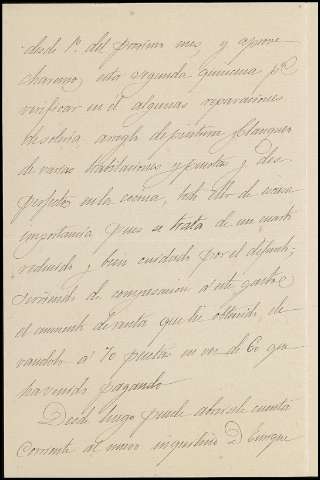 desde 1º. del proximo mes, y aprove
charemos esta segunda quincena pª
verificar en él algunas reparaciones
de solería, arreglo de pintura y blanqueo
de varias habitaciones y puertas y des-
perfectos en la cocina, todo ello de escasa
importancia pues se trata de un cuarto
reducido y bien cuidado por el difunto,
sirviendo de compensacion á este gasto
el aumento de renta que he obtenido, ele
vandolo á 70 pesetas en vez de 60 que
ha venido pagando
Desde luego puede abrirsele cuenta
corriente al nuevo inquilino D. Enrique